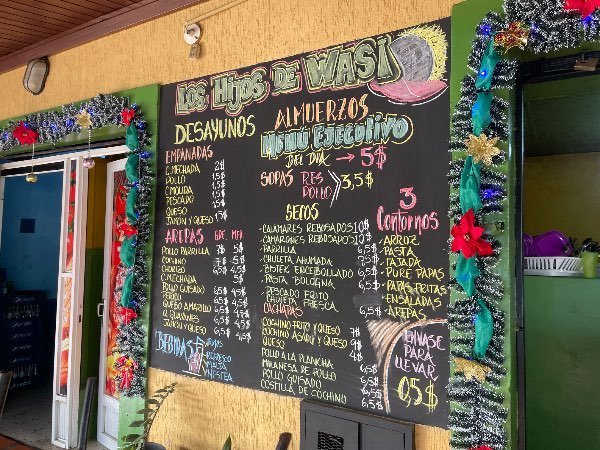 Los Hijos DE WASI
DESAYUNOS
EMPANADAS
C.MECHADA 2$
POLLO 1,5$
C.MOLIDA 1,5$
PESCADO 1,5$
QUESO 1,5$
JAMON Y QUESO 1,5$
AREPAS GDE. MED.
POLLO PARRILLA 7$ 5$
COCHINO 7$ 5$
CHORIZO 6,5$ 4,5$
C.MECHADA 5$
POLLO GUISADO 6,5$ 4$
PERICO
QUESO AMARILLO 6,5$ 4,5$
Q. GUAYANES
JAMON Y QUESO
BEBIDA
JUGOS
REFRESCO
MALTA
NESTEA
ALMUERZOS
MENU EJECUTIVO
DEL DIA → 5$
SOPAS RES
POLLO 3,5$
SECOS
CALAMARES REBOSADOS 10$
CAMARONES REBOSADOS 10$
PARRILLA 6,5$
CHULETA AHUMADA 7$
BISTEK ENCEBOLLADO 6,5$
PASTA BOLOGNA 5$
PESCADO FRITO
CHULETA FRESCA
CACHAPAS
COCHINO FRITO Y QUESO 7$
COCHINO ASADO Y QUESO 8$
QUESO 4$
POLLO A LA PLANCHA 6,5$
MILANESA DE POLLO 6,5$
POLLO GUISADO 6,5$
COSTILLA DE COCHINO 6,5$
3 Contornos
ARROZ
PASTA
TAJADA
PURE PAPAS
PAPAS FRITAS
ENSALADAS
AREPAS
ENVASE
PARA
LLEVAR
0,5$